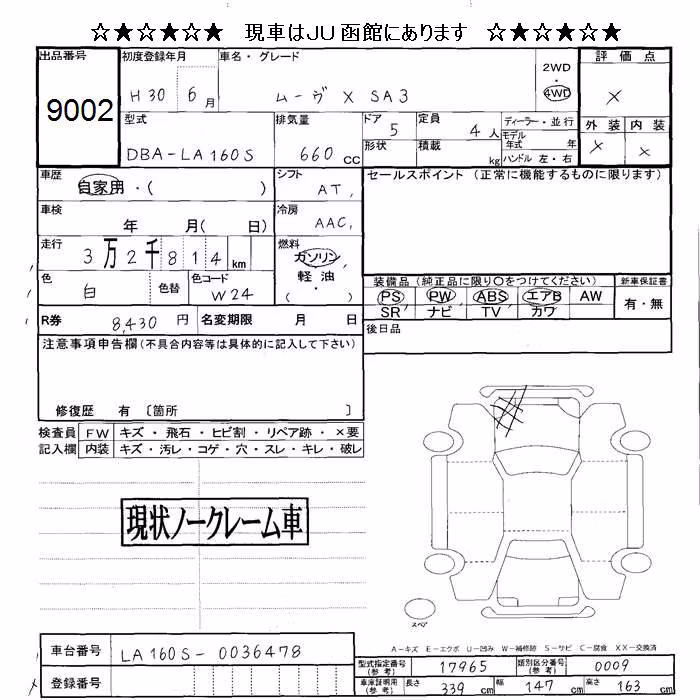 ☆★☆★☆★ 現車はJU函館にあります ☆★☆★☆★
出品番号 9002
初度登録年月 H30 6月
車名・グレード ムーヴ X SA3
2WD ・ 4WD
評価点 ×
外装 × 内装 ×
型式 DBA-LA160S
排気量 660 cc
ドア 5
形状
定員 4人
積載 kg
ディーラー・並行
モデル年式 年
ハンドル 左・右
車歴 自家用・( )
シフト AT,
セールスポイント (正常に機能するものに限ります)
車検 年 月( 日)
冷房 AAC,
走行 3万2千814km
燃料 ガソリン, 軽油 ( ・ )
色 白 色替
色コード W24
装備品 (純正品に限り○をつけてください)
PS PW ABS エアB AW
SR ナビ TV カワ
新車保証書 有・無
R券 8,430円 名変期限 月 日
後日品
注意事項申告欄(不具合内容等は具体的に記入して下さい)
修復歴 有 〔箇所 〕
検査員記入欄
FW キズ・飛石・ヒビ割・リペア跡・×要
内装 キズ・汚レ・コゲ・穴・スレ・キレ・破レ
現状ノークレーム車
スペア
A-キズ E-エクボ U-凹み W-補修跡 S-サビ C-腐食 XX-交換済
車台番号 LA160S-0036478
登録番号
型式指定番号(参考) 17965 類別区分番号(参考) 0009
車庫証明用(参考) 長さ 339 cm 幅 147 cm 高さ 163 cm